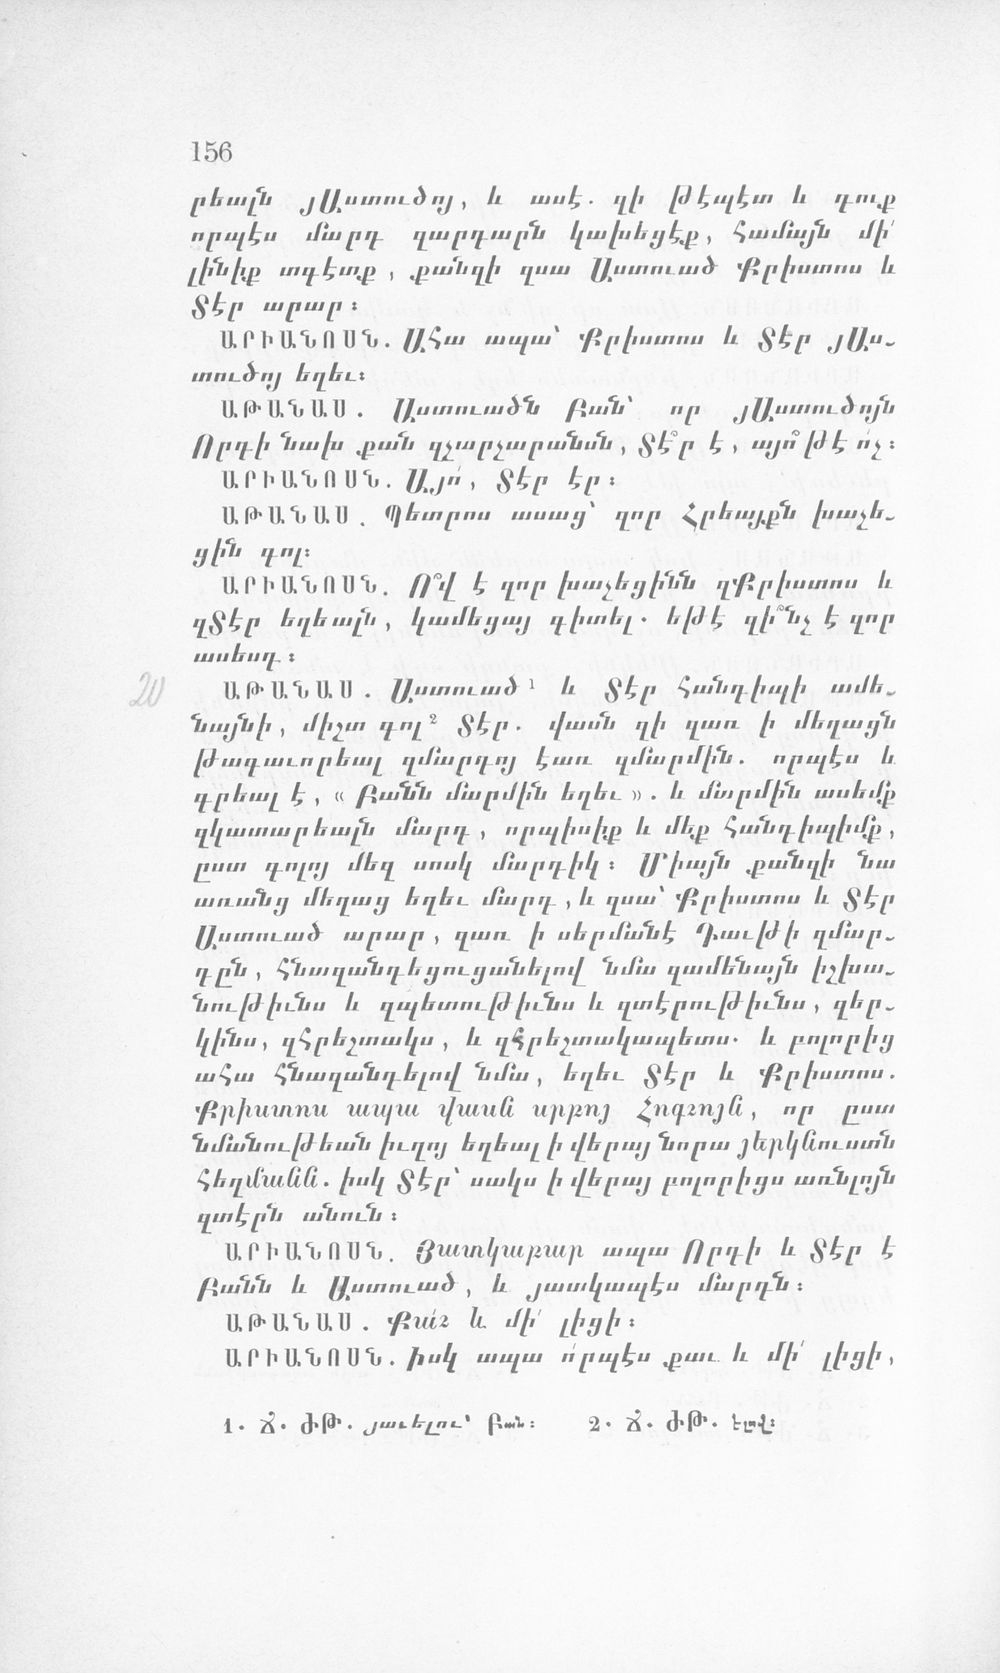 156
րեալն յԱստուծոյ, և ասէ. զի թէպէտ և դուք
որպէս մարդ զարդարն կախեցէք, համայն մի՛
լինիք տգէտք, քանզի զսա Աստուած Քրիստոս և
Տէր արար։
ԱՐԻԱՆՈՍՆ. Ահա ապա՝ Քրիստոս և Տէր յԱս֊
տուծոյ եղեւ։
ԱԹԱՆԱՍ. Աստուածն Բան՝ որ յԱստուծոյն
Որդի նախ քան զչարչարանսն, Տէ՞ր է, այո՞ թէ ո՛չ։
ԱՐԻԱՆՈՍՆ. Այո՛, Տէր էր։
ԱԹԱՆԱՍ. Պետրոս ասաց՝ զոր Հրեայքն խաչե֊
ցին գոլ։
ԱՐԻԱՆՈՍՆ. Ո՞վ է զոր խաչեցինն զՔրիստոս և
զՏէր եղեալն, կամեցայ գիտել. եթէ զի՞նչ է զոր
ասեսդ։
20 ԱԹԱՆԱՍ. Աստուած¹ և Տէր հանդիպի ամե֊
նայնի, միշտ գոլ² Տէր. վասն զի զառ ի մեղացն
թագաւորեալ զմարդոյ էառ զմարմին. որպէս և
գրեալ է, « Բանն մարմին եղեւ ». և մարմին ասեմք
զկատարեալն մարդ, որպիսիք և մեք հանդիպիմք,
ըստ գոլոյ մեզ սոսկ մարդիկ։ Միայն քանզի նա
առանց մեղաց եղեւ մարդ, և զսա՝ Քրիստոս և Տէր
Աստուած արար, զառ ի սերմանէ Դաւթի զմար֊
դըն, հնազանդեցուցանելով նմա զամենայն իշխա֊
նութիւնս և զպետութիւնս և զտէրութիւնս, զեր֊
կինս, զհրեշտակս, և զհրեշտակապետս. և բոլորից
ահա հնազանդելով նմա, եղեւ Տէր և Քրիստոս.
Քրիստոս ապա վասն սրբոյ Հոգւոյն, որ ըստ
նմանութեան իւղոյ եղեալ ի վերայ նորա յերկնուստն
հեղմանն. իսկ Տէր՝ սակս ի վերայ բոլորիցս առնլոյն
զտէրն անուն։
ԱՐԻԱՆՈՍՆ. Յատկաբար ապա Որդի և Տէր է
Բանն և Աստուած, և յատկապէս մարդն։
ԱԹԱՆԱՍ. Քա՛ւ և մի՛ լիցի։
ԱՐԻԱՆՈՍՆ. իսկ ապա ո՛րպէս քաւ և մի՛ լիցի,
1. Ճ. ԺԹ. յաւելու՝ Բան։ 2. Ճ. ԺԹ. էլով։